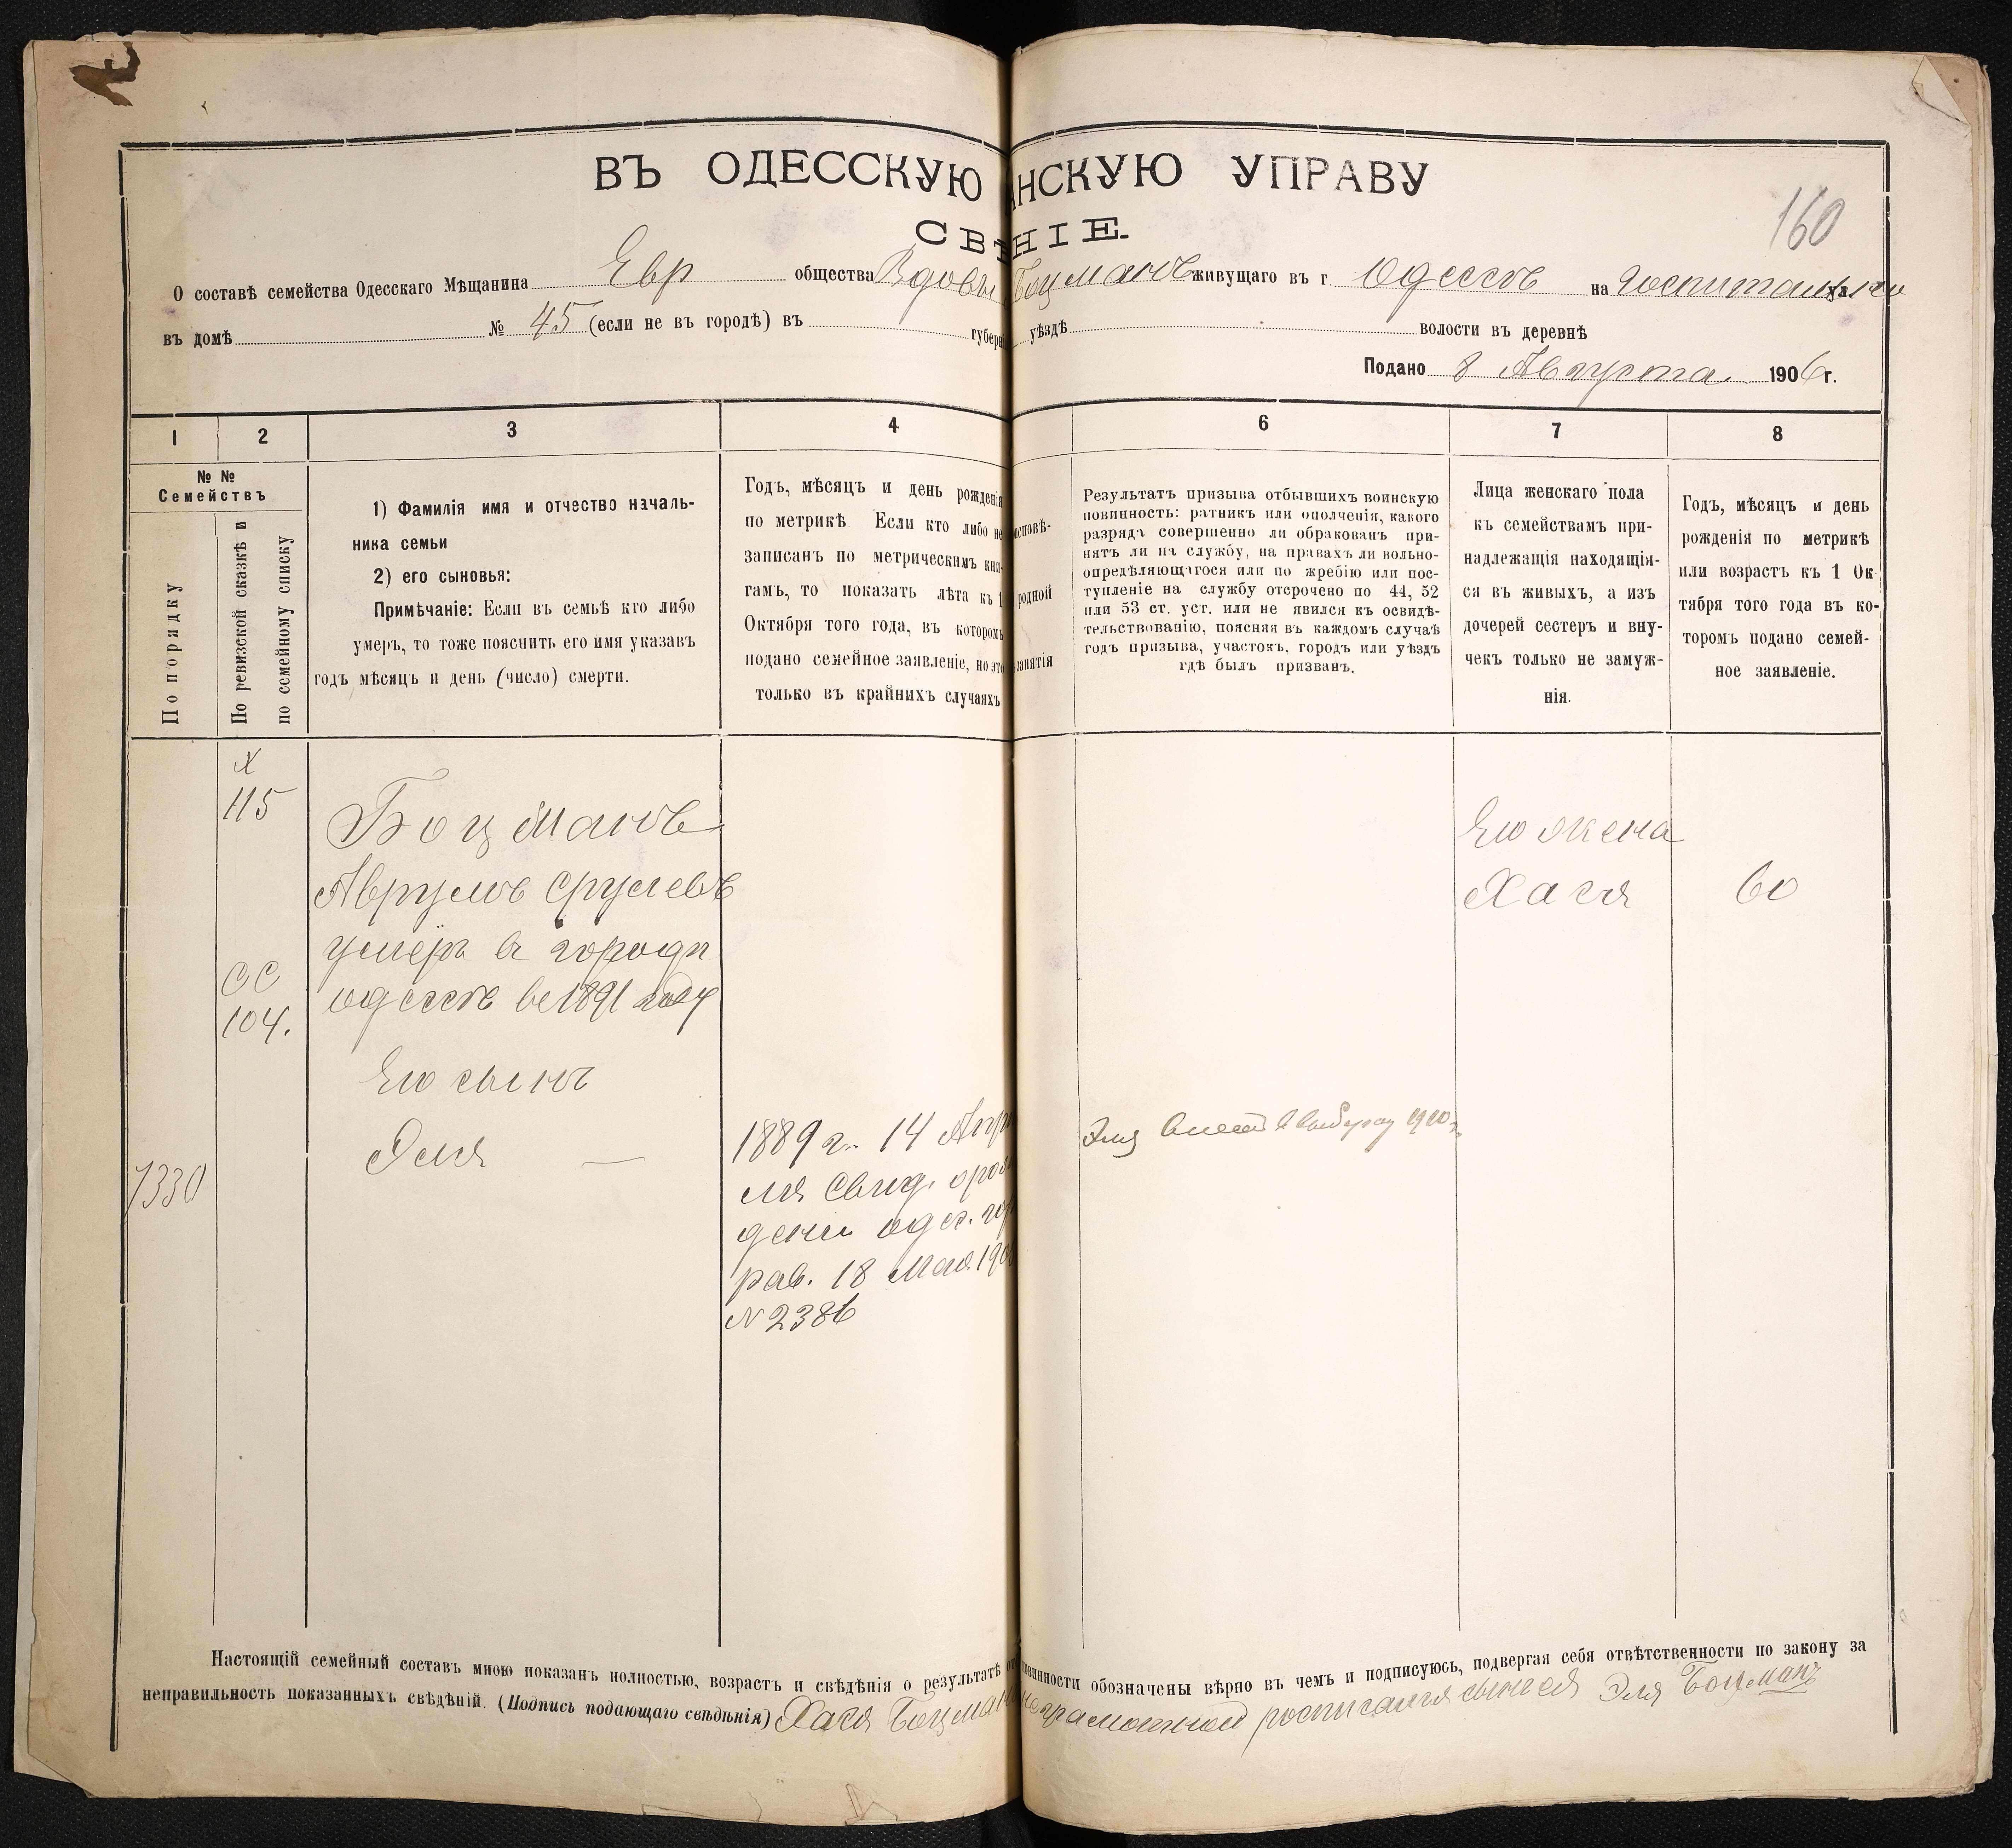 160
ВЪ ОДЕССКУЮ АНСКУЮ УПРАВУ
СВѢНІЕ.
О составѣ семейства Одесскаго Мѣщанина Евр общества Вдовы Боцманъ живущаго въ г Одессѣ на Госпитальной
въ домѣ № 45 (если не въ городѣ) въ губерн уѣздѣ волости въ деревнѣ
Подано 8 Августа 1906 г.
1 2 3 4 6 7 8
№ №
Семействъ
По порядку
По ревизской сказкѣ и
по семейному списку
1) Фамилія имя и отчество началь-
ника семьи
2) его сыновья:
Примѣчаніе: Если въ семьѣ кто либо
умеръ, то тоже пояснить его имя указавъ
годъ мѣсяцъ и день (число) смерти.
Годъ, мѣсяцъ и день рожденія
по метрикѣ Если кто либо не
записанъ по метрическимъ кни-
гамъ, то показать лѣта къ 1
Октября того года, въ которомъ
подано семейное заявленіе, но это
только въ крайнихъ случаяхъ
исповѣ-
родной
занятія
Результатъ призыва отбывшихъ воинскую
повинность: ратникъ или ополченія, какого
разряда совершенно ли обракованъ при-
нятъ ли на службу, на правахъ ли вольно-
опредѣляющагося или по жребію или пос-
тупленіе на службу отсрочено по 44, 52
или 53 ст. уст. или не явился къ освидѣ-
тельствованію, поясняя въ каждомъ случаѣ
годъ призыва, участокъ, городъ или уѣздъ
гдѣ былъ призванъ.
Лица женскаго пола
къ семействамъ при-
надлежащія находящія-
ся въ живыхъ, а изъ
дочерей сестеръ и вну-
чекъ только не замуж-
нія.
Годъ, мѣсяцъ и день
рожденія по метрикѣ
или возрастъ къ 1 Ок
тября того года въ ко-
торомъ подано семей-
ное заявленіе.
X
115
СС
104.
1330
Боцманъ
Аврумъ Срулевъ
умеръ в городѣ
одессѣ въ 1891 году
Его сынъ
Эля —
1889 г. 14 Апр
ля Свид. о рож
дени одес. гор
рав. 18 Мая 190
N 2386
Эля 1910 г.
Его жена
Хася
60
Настоящій семейный составъ мною показанъ полностью, возрастъ и свѣдѣнія о результатѣ от винности обозначены вѣрно въ чемъ и подписуюсь, подвергая себя отвѣтственности по закону за
неправильность показанныхъ свѣдѣній. (Подпись подающаго свѣдѣнія) Хася Боцман неграмотной росписался сынъ ея Эля Боцманъ